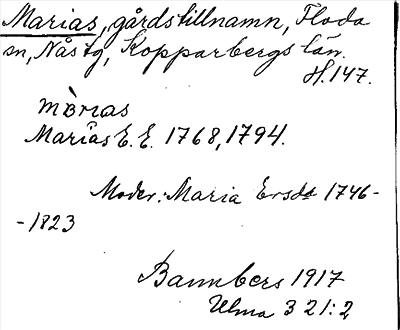 Marias, gårdstillnamn, Floda
sn, Nås tg, Kopparbergs län.
H. 147.
Marias E. E. 1768, 1794.
Moder: Maria Ersdr 1746-
-1823
Bannbers 1917
Ulma 321:2